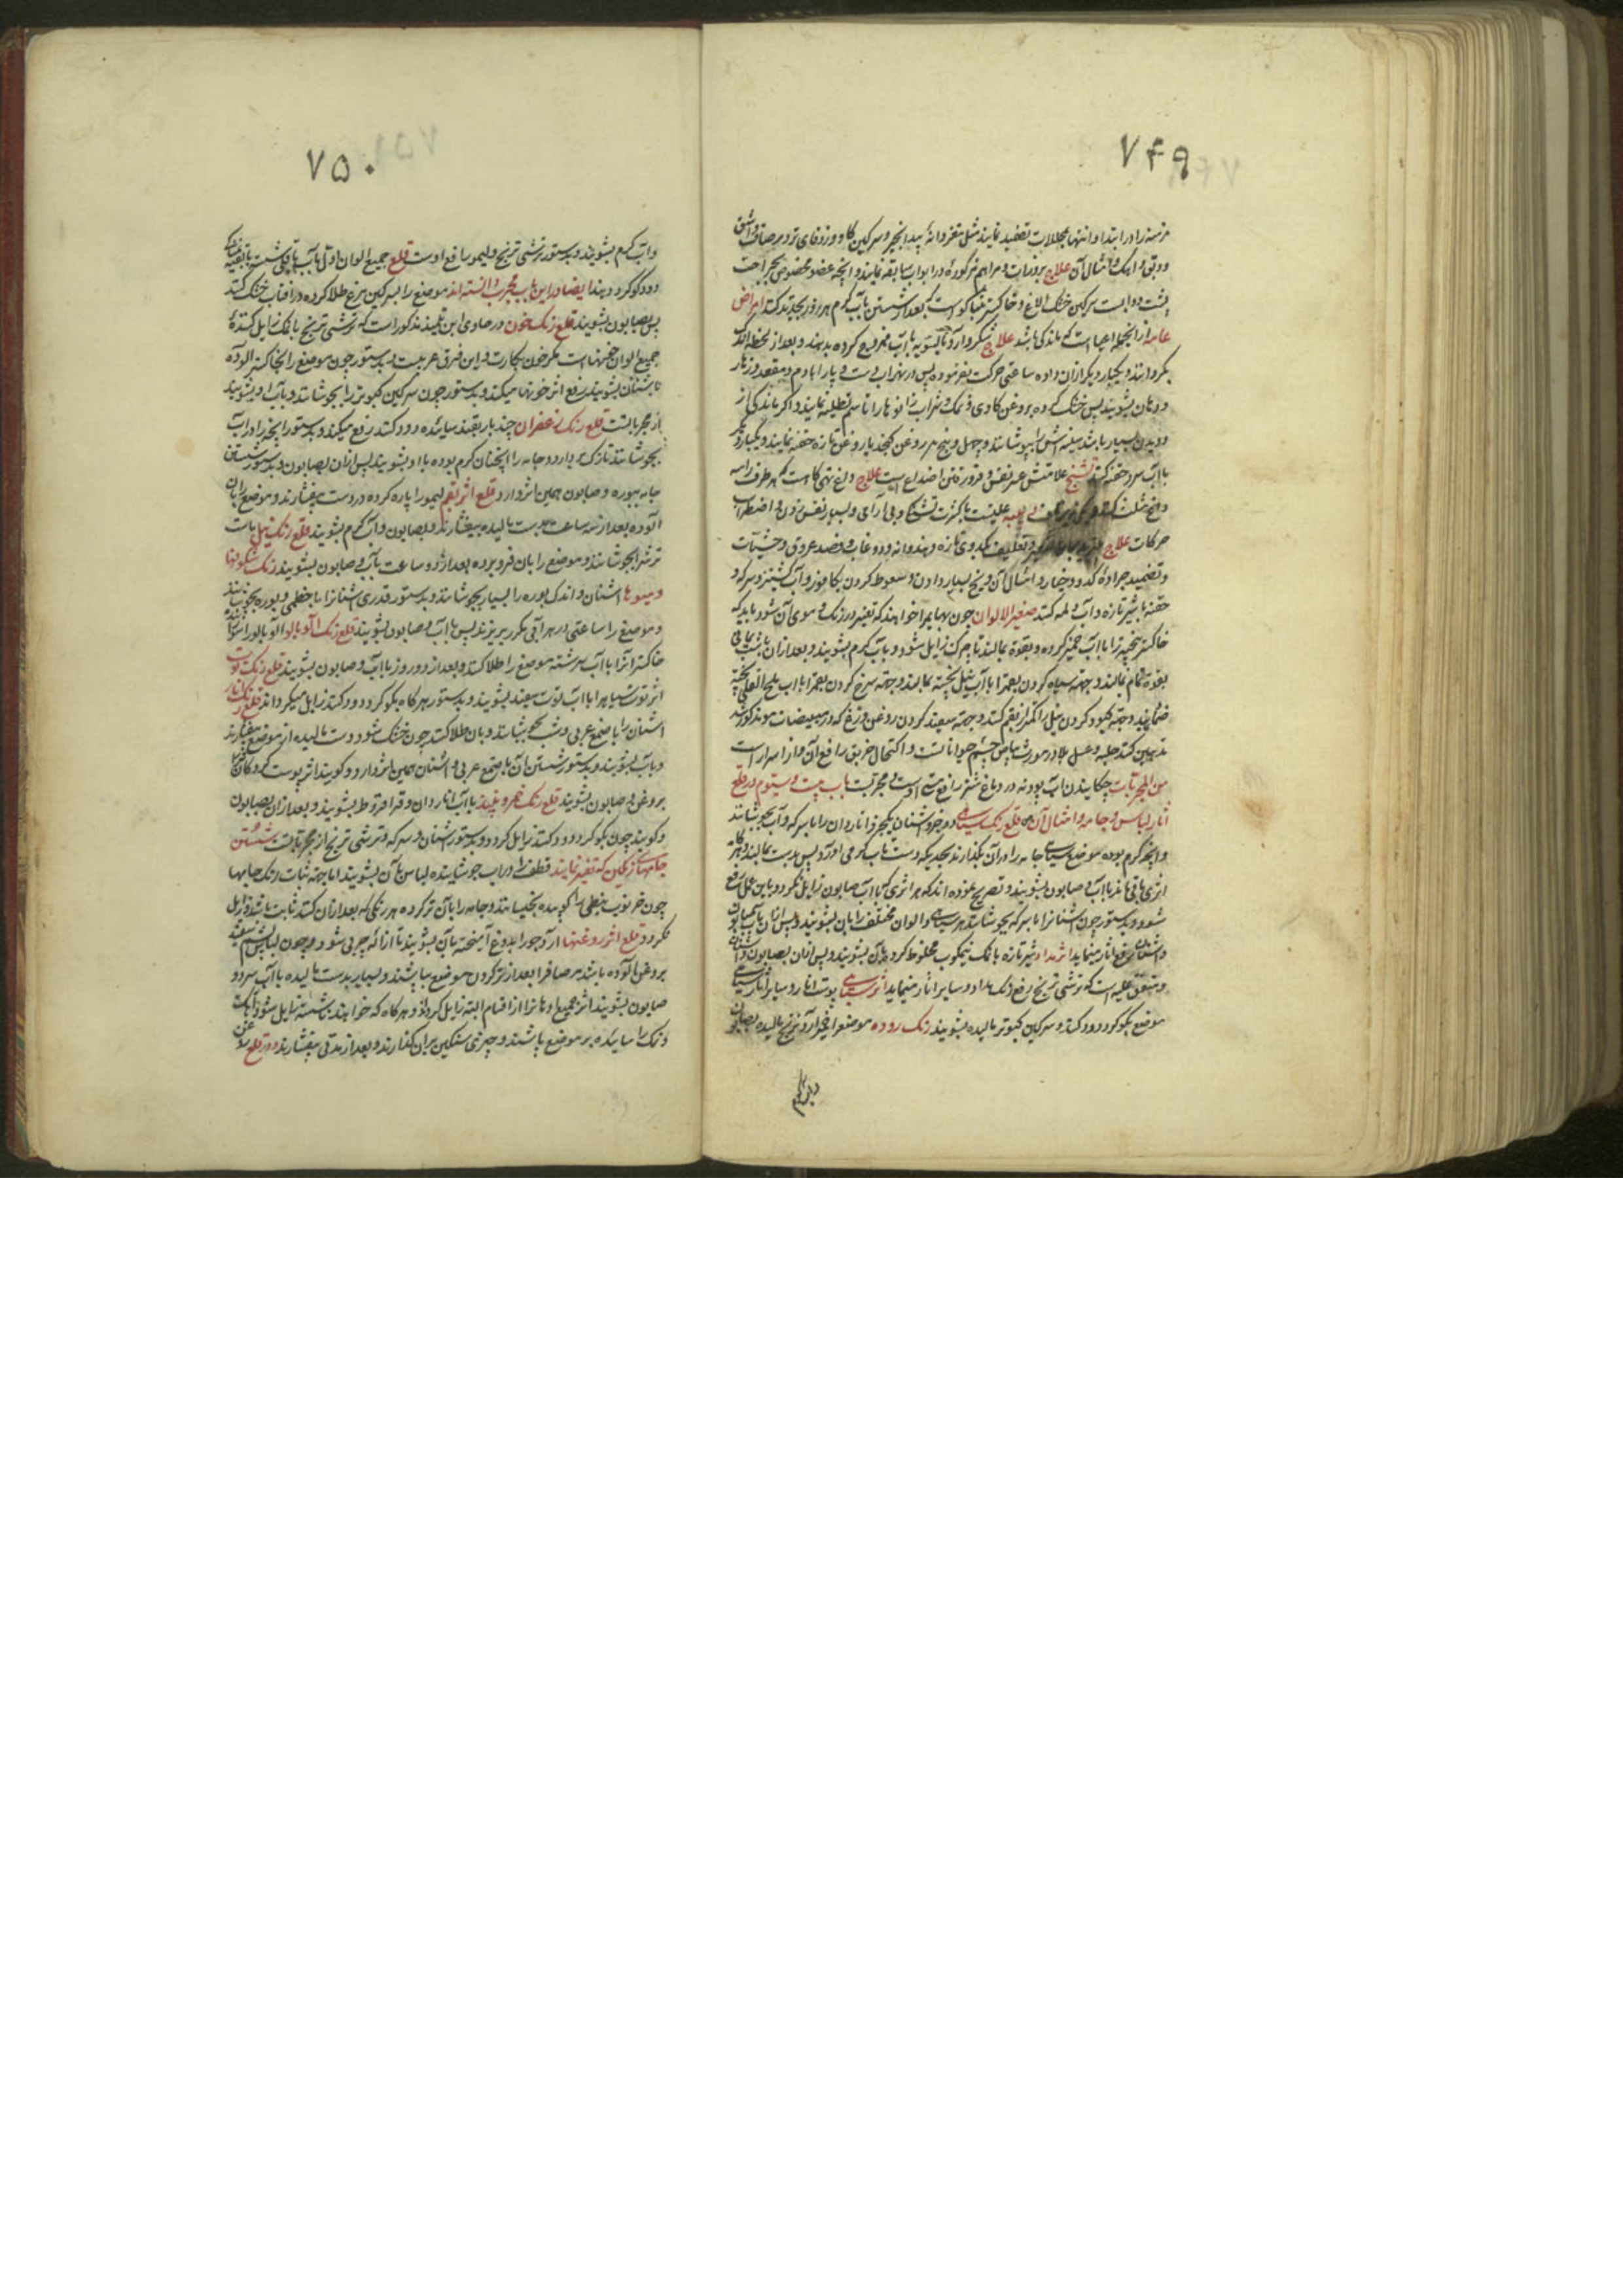 ۷۴۹
مزمنه را در ابتدا و انتها بمحللات تضمید نمایند مثل مغز دانهٔ بید انجیر و سرکین کاو و زوفای تر و برصاف و اشق
و دبق و اهک و امثال آن علاج بذرورات و مراهم مذکورهٔ در ابواب سابقه نمایند و انچه عضو مخصوص بجراحت
پشت دوابست سرکین خشک الاغ و خاکستر تنباکو است که بعد از شستن بآب کرم هر روز تجدید کنند امراض
عامه از انجمله اعیا است که ماندکی باشد علاج شکر و آرد را بالسویه با آب ممزوج کرده بدهند و بعد از لحظه اندک
بکردانند و یکبار دیکر از آن داده ساعتی حرکت بفرموده پس در نهر آب دست و پا را با دم و مقعد و زهار
و دهان بشویند پس خشک کرده بروغن کاو و نمک و شراب زانوها را تا سم تطلیه نمایند و اکر ماندکی از
دویدن بسیار باشد سینه اش را بپوشانند و چهل و پنج درم روغن کنجد یا روغن تازه حقنه نمایند و یکبار دیکر
با آب سرد حقنه کنند تشنج علامتش عسر نفس و فرو رفتن اضلاع است علاج داغ تهی کاه است که هر طرف را سه
داغ مثلث کنند علیشت با کثرت تشنکی و بی آرامی و بسیار نفس زدن و اضطراب
حرکات علاج کدوی تازه و هندوانه و دوغاب و فصد عروق و حشیشات
و تضمید جرادهٔ کدو و خیار و امثال آن و یخ بسیار دادن و سعوط کردن بکافور و آب کشنیز و سرکه و
حقنه با شیر تازه و آب و لمه کنند صبغ الالوان چون بهایم را خواهند که تغییر در رنک و موی آن شود باید که
خاکستر پنجه تر را با آب خمیر کرده و بقوة بمالند تا چرک زایل شود و بآب کرم بشویند و بعد از آن
بقوة تمام بمالند و جهة سیاه کردن بقم را با آب نیل پخته بمالند و جهة سرخ کردن بقم را با آب
ضماد نمایند و جهة کبود کردن نیل را کمتر از بقم کنند و جهة سفید کردن روغن وزغ که در مبیضات مو مذکور شد
تدهین کنند حلبه و عسل بلادر مورث بیاض چشم حیوانات و اکتحال خربق رافع آن و از اسرار است
من المجربات چکانیدن آب پودنه در دماغ شتر رافع مستی اوست و مجربست باب بیست و سیوم در قلع
آثار لباس و جامه و امثال آن قلع رنک سیاهی دو جزو اشنان یکجزو اناردان را با سرکه و آب بجوشانند
و انچه کرم بوده موضع سیاهی جامه را در آن بگذارند بحدیکه دست تاب گرمی او آرد پس بدست بمالند و هر
اثری باقی ماند با آب و صابون بشویند و تصریح نموده اند که هر اثری که با آب صابون زایل نکردد باین عمل رفع
شود و بدستور چون اشنان را با سرکه بجوشانند هر سیاهی و الوان مختلف را بآن بشویند و پس از آن بآب صابون
و اشنان رفع اثار مینماید اثر مداد شیر تازه با نمک نیمکوب مخلوط کرده بآن بشویند و پس از آن بصابون و اشنان
و متفق علیه است که ترشی ترنج رفع رنک مداد و سایر اثار مینماید اثر سیاهی پوست انار و سایر آثار سیاهی
موضع بکوکرد دود کنند و سرکین کبوتر مالیده بشویند رنک روده موضع را بخمیر آرد برنج مالیده بصابون
و بآب گرم
۷۵۰
و آب کرم بشویند و بدستور ترشی ترنج و لیمو رافع اوست قلع جمیع الوان اول بآب باقلی شسته
دود کوکرد دهند ایضا در این باب مجرب دانسته اند موضع را بسرکین مرغ طلا کرده در آفتاب خشک کنند
پس بصابون بشویند قلع رنک خون در حاوی ابن تلمیذ مذکور است که ترشی ترنج با نمک زایل کنندهٔ
جمیع الوان خونهاست مکر خون بکارت و این فرق غریب است و بدستور چون موضع را بخاکستر آلوده
باشنان بشویند رفع اثر خونها میکند و بدستور چون سرکین کبوتر را بجوشانند و بآب او بشویند
از مجرباتست قلع رنک زعفران چند بار بقند سائیده دود کنند رفع میکند و بدستور انجیر را در آب
بجوشانند تا رنک بردارد و جامه را انچنان کرم بوده با او بشویند پس از آن بصابون و بدستور شستن
جامه ببوره و صابون همین اثر دارد قلع اثر بقم لیمو را پاره کرده در دست بفشارند و موضع را بآن
آلوده بعد از سه ساعت بدست مالیده بیفشارند و بصابون و آب کرم بشویند قلع رنک نیل ماست
ترش را بجوشانند و موضع را بآن فرو برده بعد از دو ساعت بآب و صابون بشویند رنک شکوفها
و میوها اشنان و اندک بوره را بسیار بجوشانند و بدستور قدری اشنان را با خطمی و بوره بجوشانند
و موضع را ساعتی در هر آبی مکرر بریزند پس با آب و صابون بشویند قلع رنک آلوبالو آلوبالو را سوزانده
خاکستر آنرا با آب سرشته موضع را طلا کنند و بعد از دو روز با آب و صابون بشویند قلع رنک توت
اثر توت سیاه را با آب توت سفید بشویند و بدستور هر کاه بکوکرد دود کنند زایل میکرداند قلع رنک انار
اشنان را با صمغ عربی و شب بجوشانند و بآن طلا کنند چون خشک شود دست مالیده از موضع بیفکنند
و بآب بشویند و بدستور شستن آن با صمغ عربی و اشنان همین اثر دارد و کویند اثر پوست کردکان را
بروغن و صابون بشویند قلع رنک خمر و نبیذ با آب اناردان و قرا قروط بشویند و بعد از آن بصابون
و کویند چون بکوکرد دود کنند زایل کردد و بدستور اشنان و سرکه و ترشی ترنج از مجرباتست شستن
جامهای رنکین که تغییر نیابند قطف را در آب جوشانیده لباس را بآن بشویند اما جهة ثبات رنک جامها
چون خرنوب نبطی را کوبیده بخیسانند و جامه را بآن تر کرده هر رنکی که بعد از آن کنند ثابت باشد و زایل
نکردد قلع اثر روغنها آرد جو را بدوغ آمیخته بآن بشویند تا ازالهٔ چربی شود و چون لباس پشم سفید
بروغن آلوده باشد برصاف را بعد از تر کردن موضع بپاشند و بسیار بدست مالیده با آب سرد و
صابون بشویند اثر جمیع ادهان را از اقسام البته زایل کرداند و هر کاه که خواهند نشسته زایل شود آهک
و نمک را سائیده بر موضع پاشند و چیزی سنکین بر آن گذارند و بعد از مدتی بیفشارند و در قلع روغن